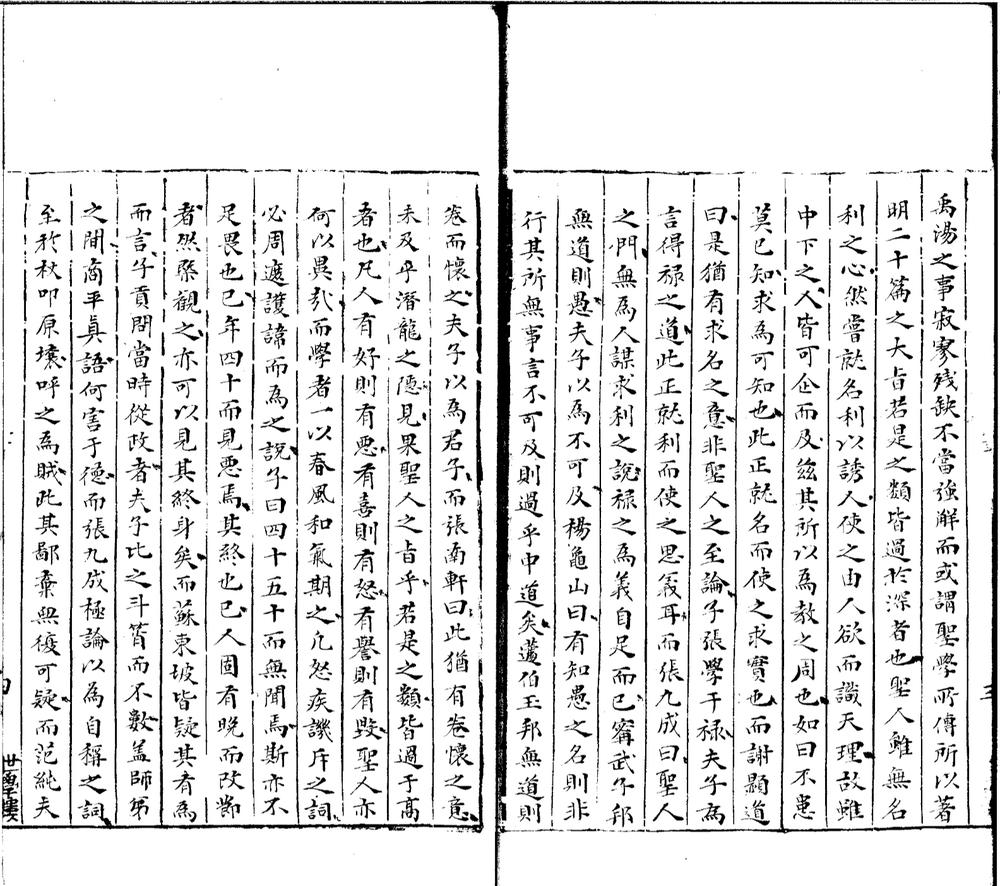 禹湯之事寂寥残缺不當強解而或謂聖學所傳所以著
明二十篇之大旨若是之類皆過於深者也聖人雖無名
利之心然嘗就名利以誘人使之由人欲而識天理故雖
中下之人皆可企而及兹其所以為教之周也如曰不患
莫己知求為可知也此正就名而使之求實也而謝顯道
曰是猶有求名之意非聖人之至論子張學干禄夫子為
言得禄之道此正就利而使之思義耳而張九成曰聖人
之門無為人謀求利之說禄之為義自足而已甯武子邦
無道則愚夫子以為不可及楊龜山曰有知愚之名則非
行其所無事言不可及則過乎中道矣蘧伯玉邦無道則
卷而懷之夫子以為君子而張南軒曰此猶有卷懷之意
未及乎潛龍之隱見果聖人之旨乎若是之類皆過于高
者也凡人有好則有惡有喜則有怒有譽則有毀聖人亦
何以異哉而學者一以春風和氣期之凡忿疾譏斥之詞
必周遮護諱而為之說子曰四十五十而無聞焉斯亦不
足畏也已年四十而見惡焉其終也已人固有晚而改節
者然槩觀之亦可以見其終身矣而蘇東坡皆疑其有為
而言子貢問當時從政者夫子比之斗筲而不數盖師弟
之間商平真語何害于德而張九成極論以為自稱之詞
至於秋叩原壤呼之為賊此其鄙棄無復可疑而范純夫